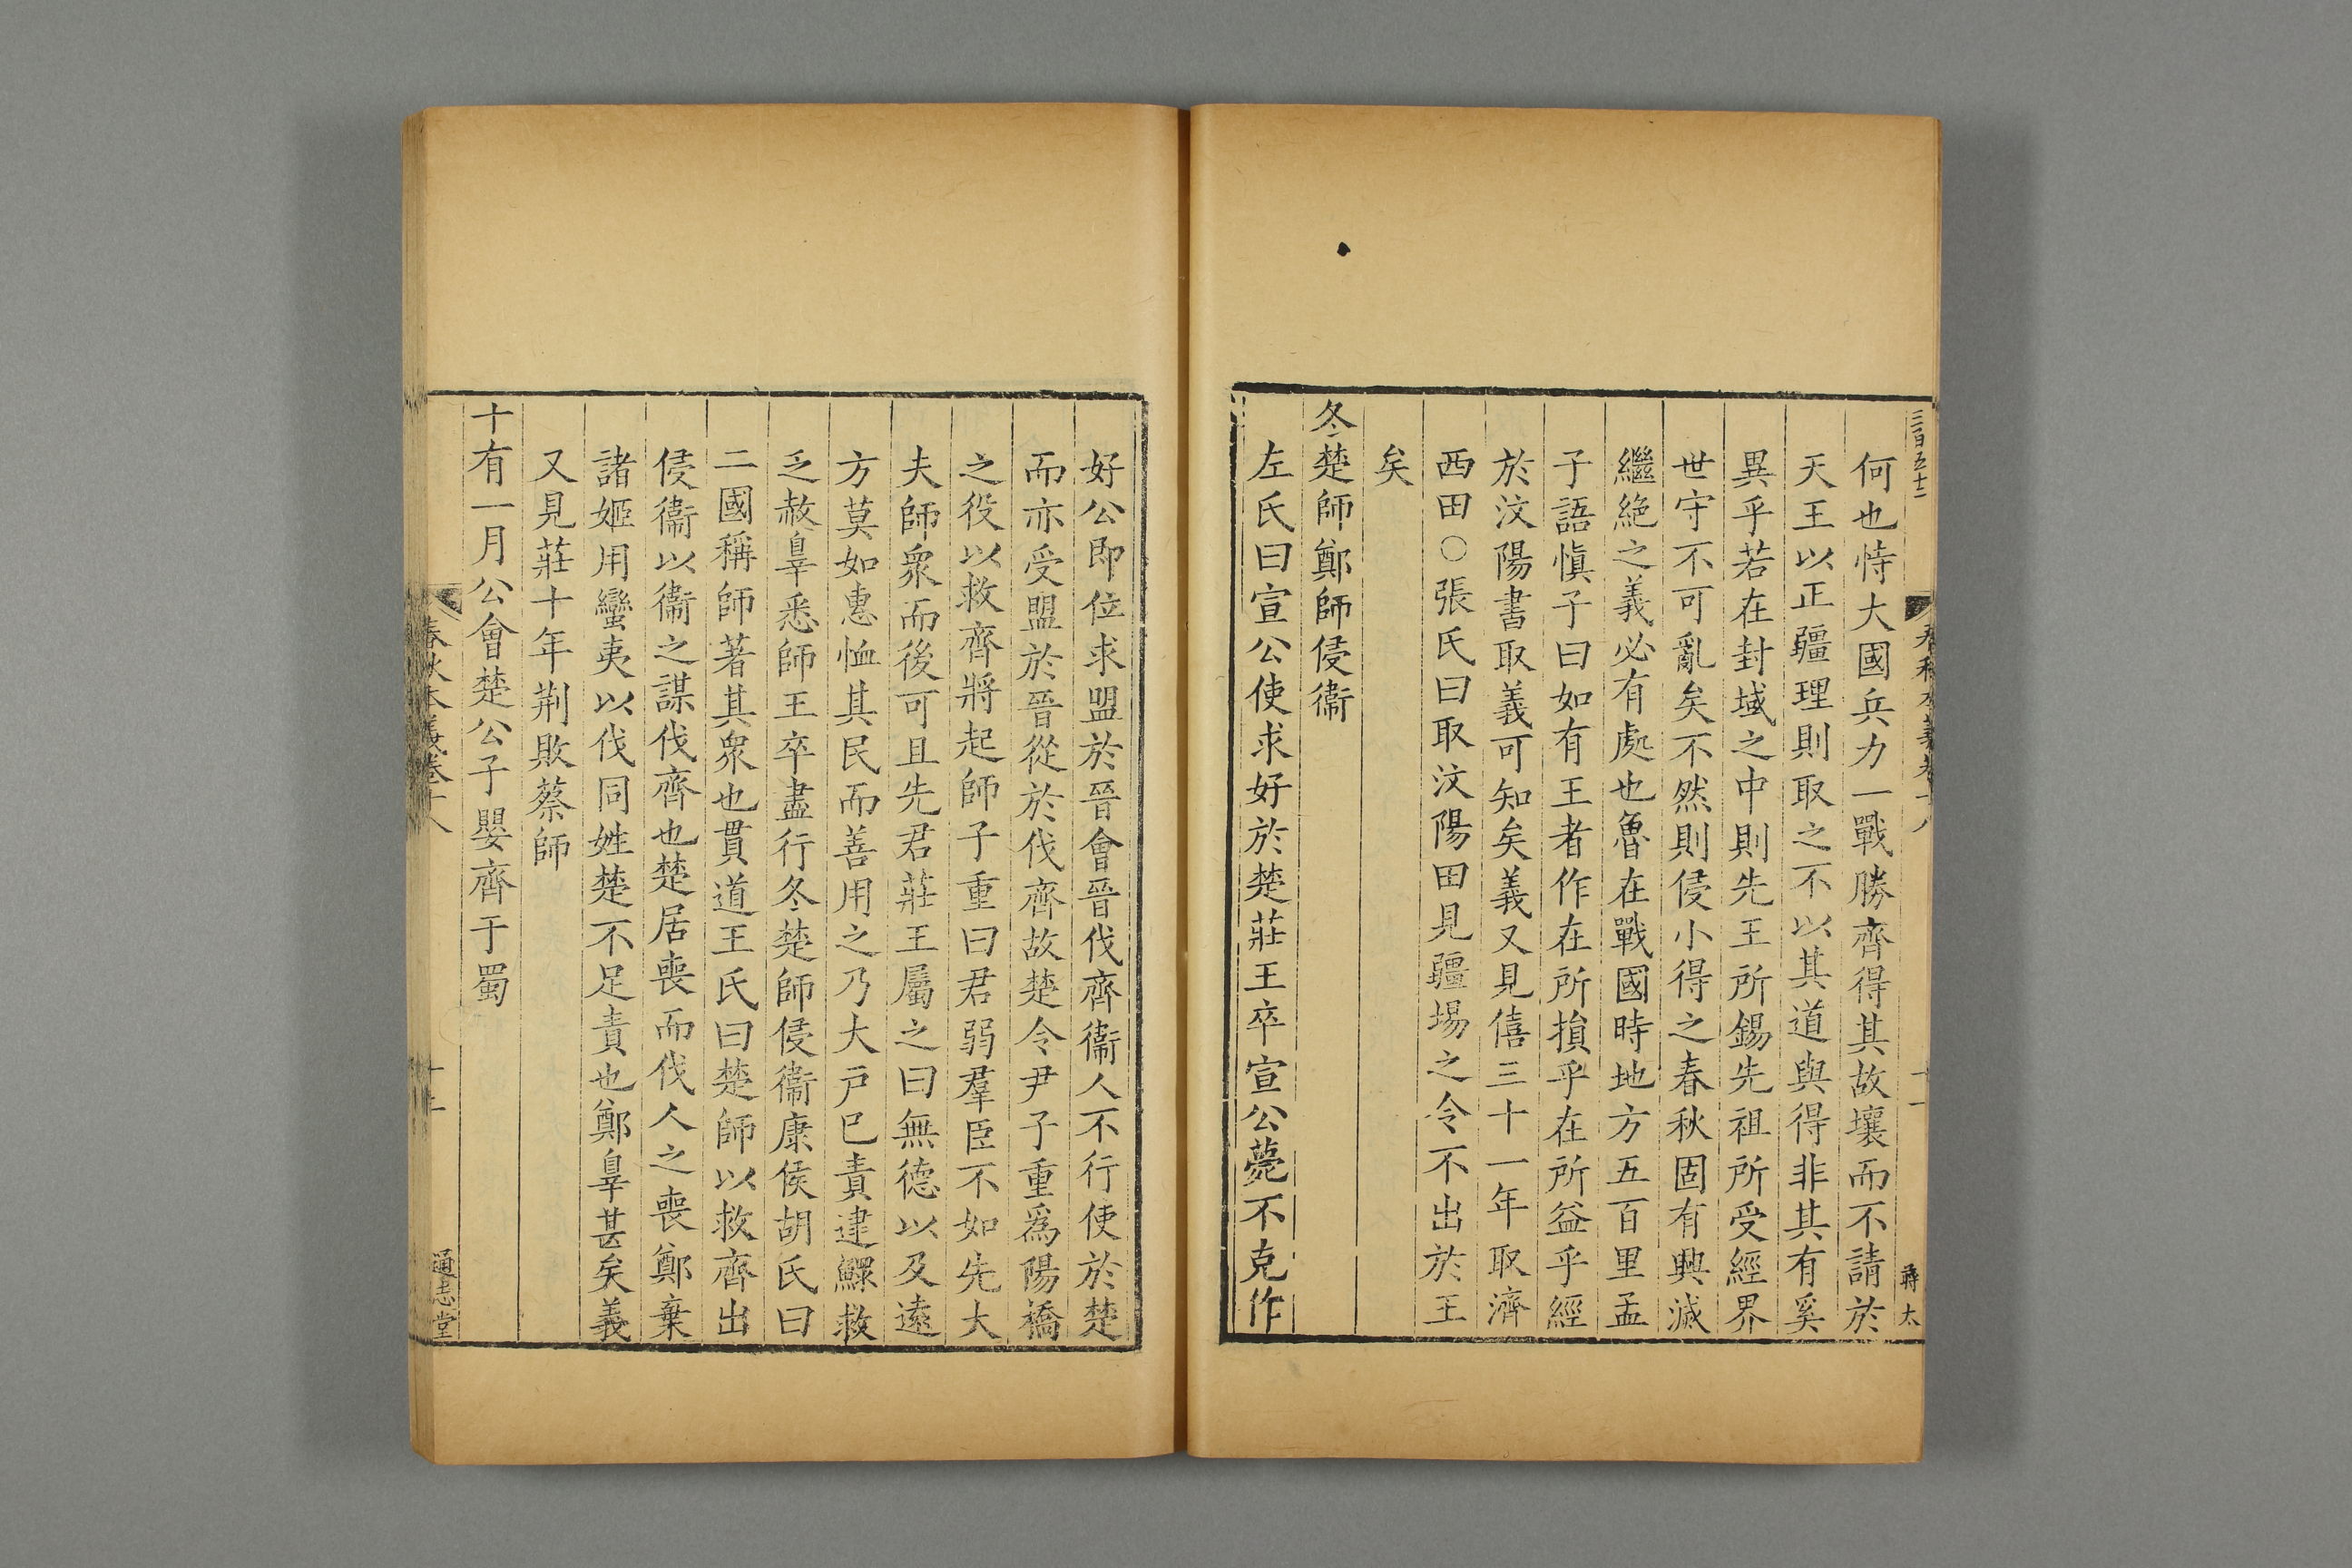 三百五十二
春秋本義卷十八
十一
蔣太
何也恃大國兵力一戰勝齊得其故壤而不請於
天王以正疆理則取之不以其道與得非其有奚
異乎若在封域之中則先王所錫先祖所受經界
世守不可亂矣不然則侵小得之春秋固有興滅
繼絕之義必有處也魯在戰國時地方五百里孟
子語慎子曰如有王者作在所損乎在所益乎經
於汶陽書取義可知矣義又見僖三十一年取濟
西田○張氏曰取汶陽田見疆場之令不出於王
矣
冬楚師鄭師侵衞
左氏曰宣公使求好於楚莊王卒宣公薨不克作
好公即位求盟於晉會晉伐齊衞人不行使於楚
而亦受盟於晉從於伐齊故楚令尹子重爲陽橋
之役以救齊將起師子重曰君弱羣臣不如先大
夫師衆而後可且先君莊王屬之曰無德以及遠
方莫如惠恤其民而善用之乃大戸巳責逮鰥救
乏赦辠悉師王卒盡行冬楚師侵衞康侯胡氏曰
二國稱師著其衆也貫道王氏曰楚師以救齊出
侵衞以衞之謀伐齊也楚居喪而伐人之喪鄭棄
諸姬用蠻夷以伐同姓楚不足責也鄭辠甚矣義
又見莊十年荆敗蔡師
十有一月公會楚公子嬰齊于蜀
春秋本義卷十八
通志堂